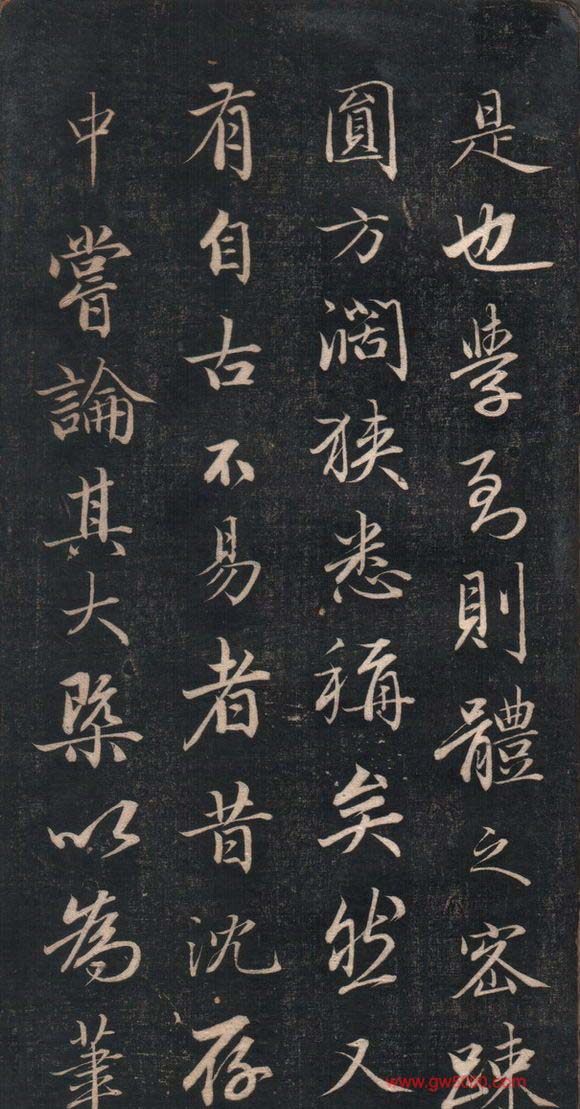 是也學到則體之密疎
圓方闊狹悉稱矣然又
有自古不易者昔沈存
中嘗論其大槩以為筆
www.gw5000.com